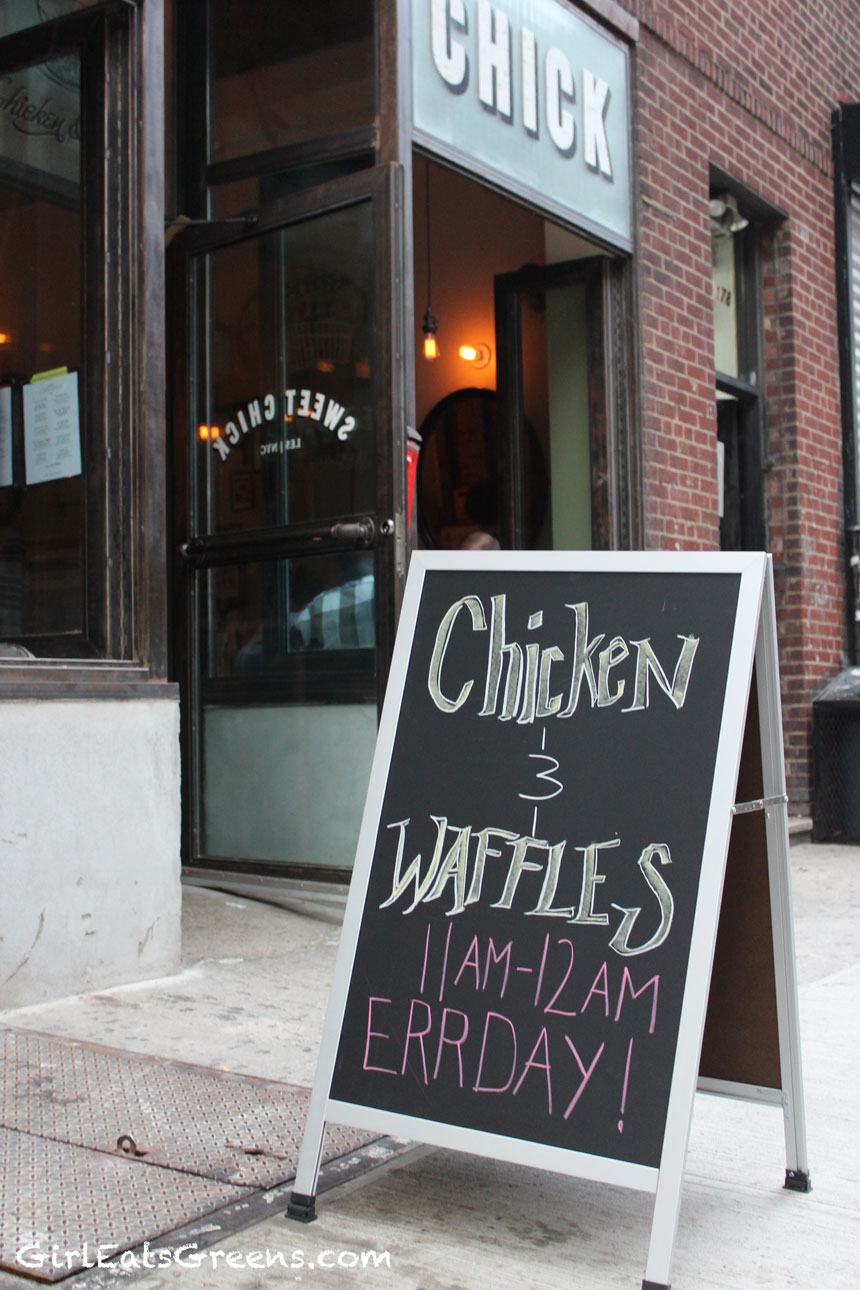 CHICK
Chicken &
178
SWEET CHICK
LES | NYC
Chicken
&
WAFFLES
11AM-12AM
ERRDAY!
GirlEatsGreens.com